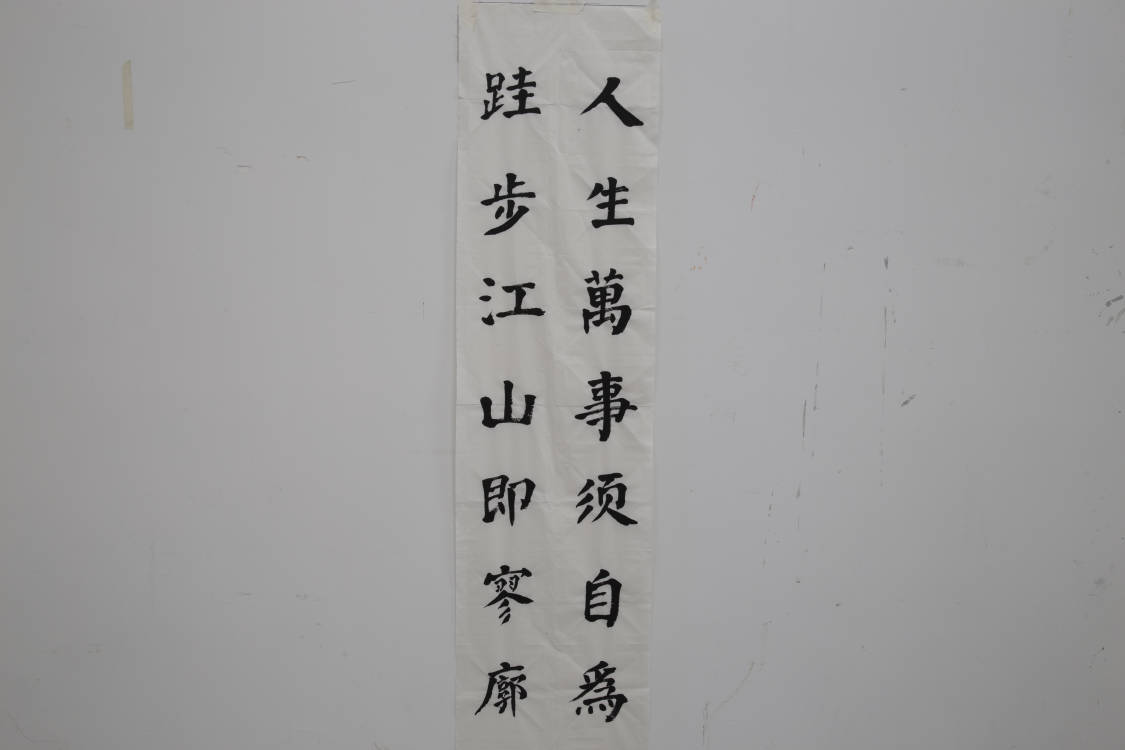 人生萬事须自為
跬步江山即寥廓